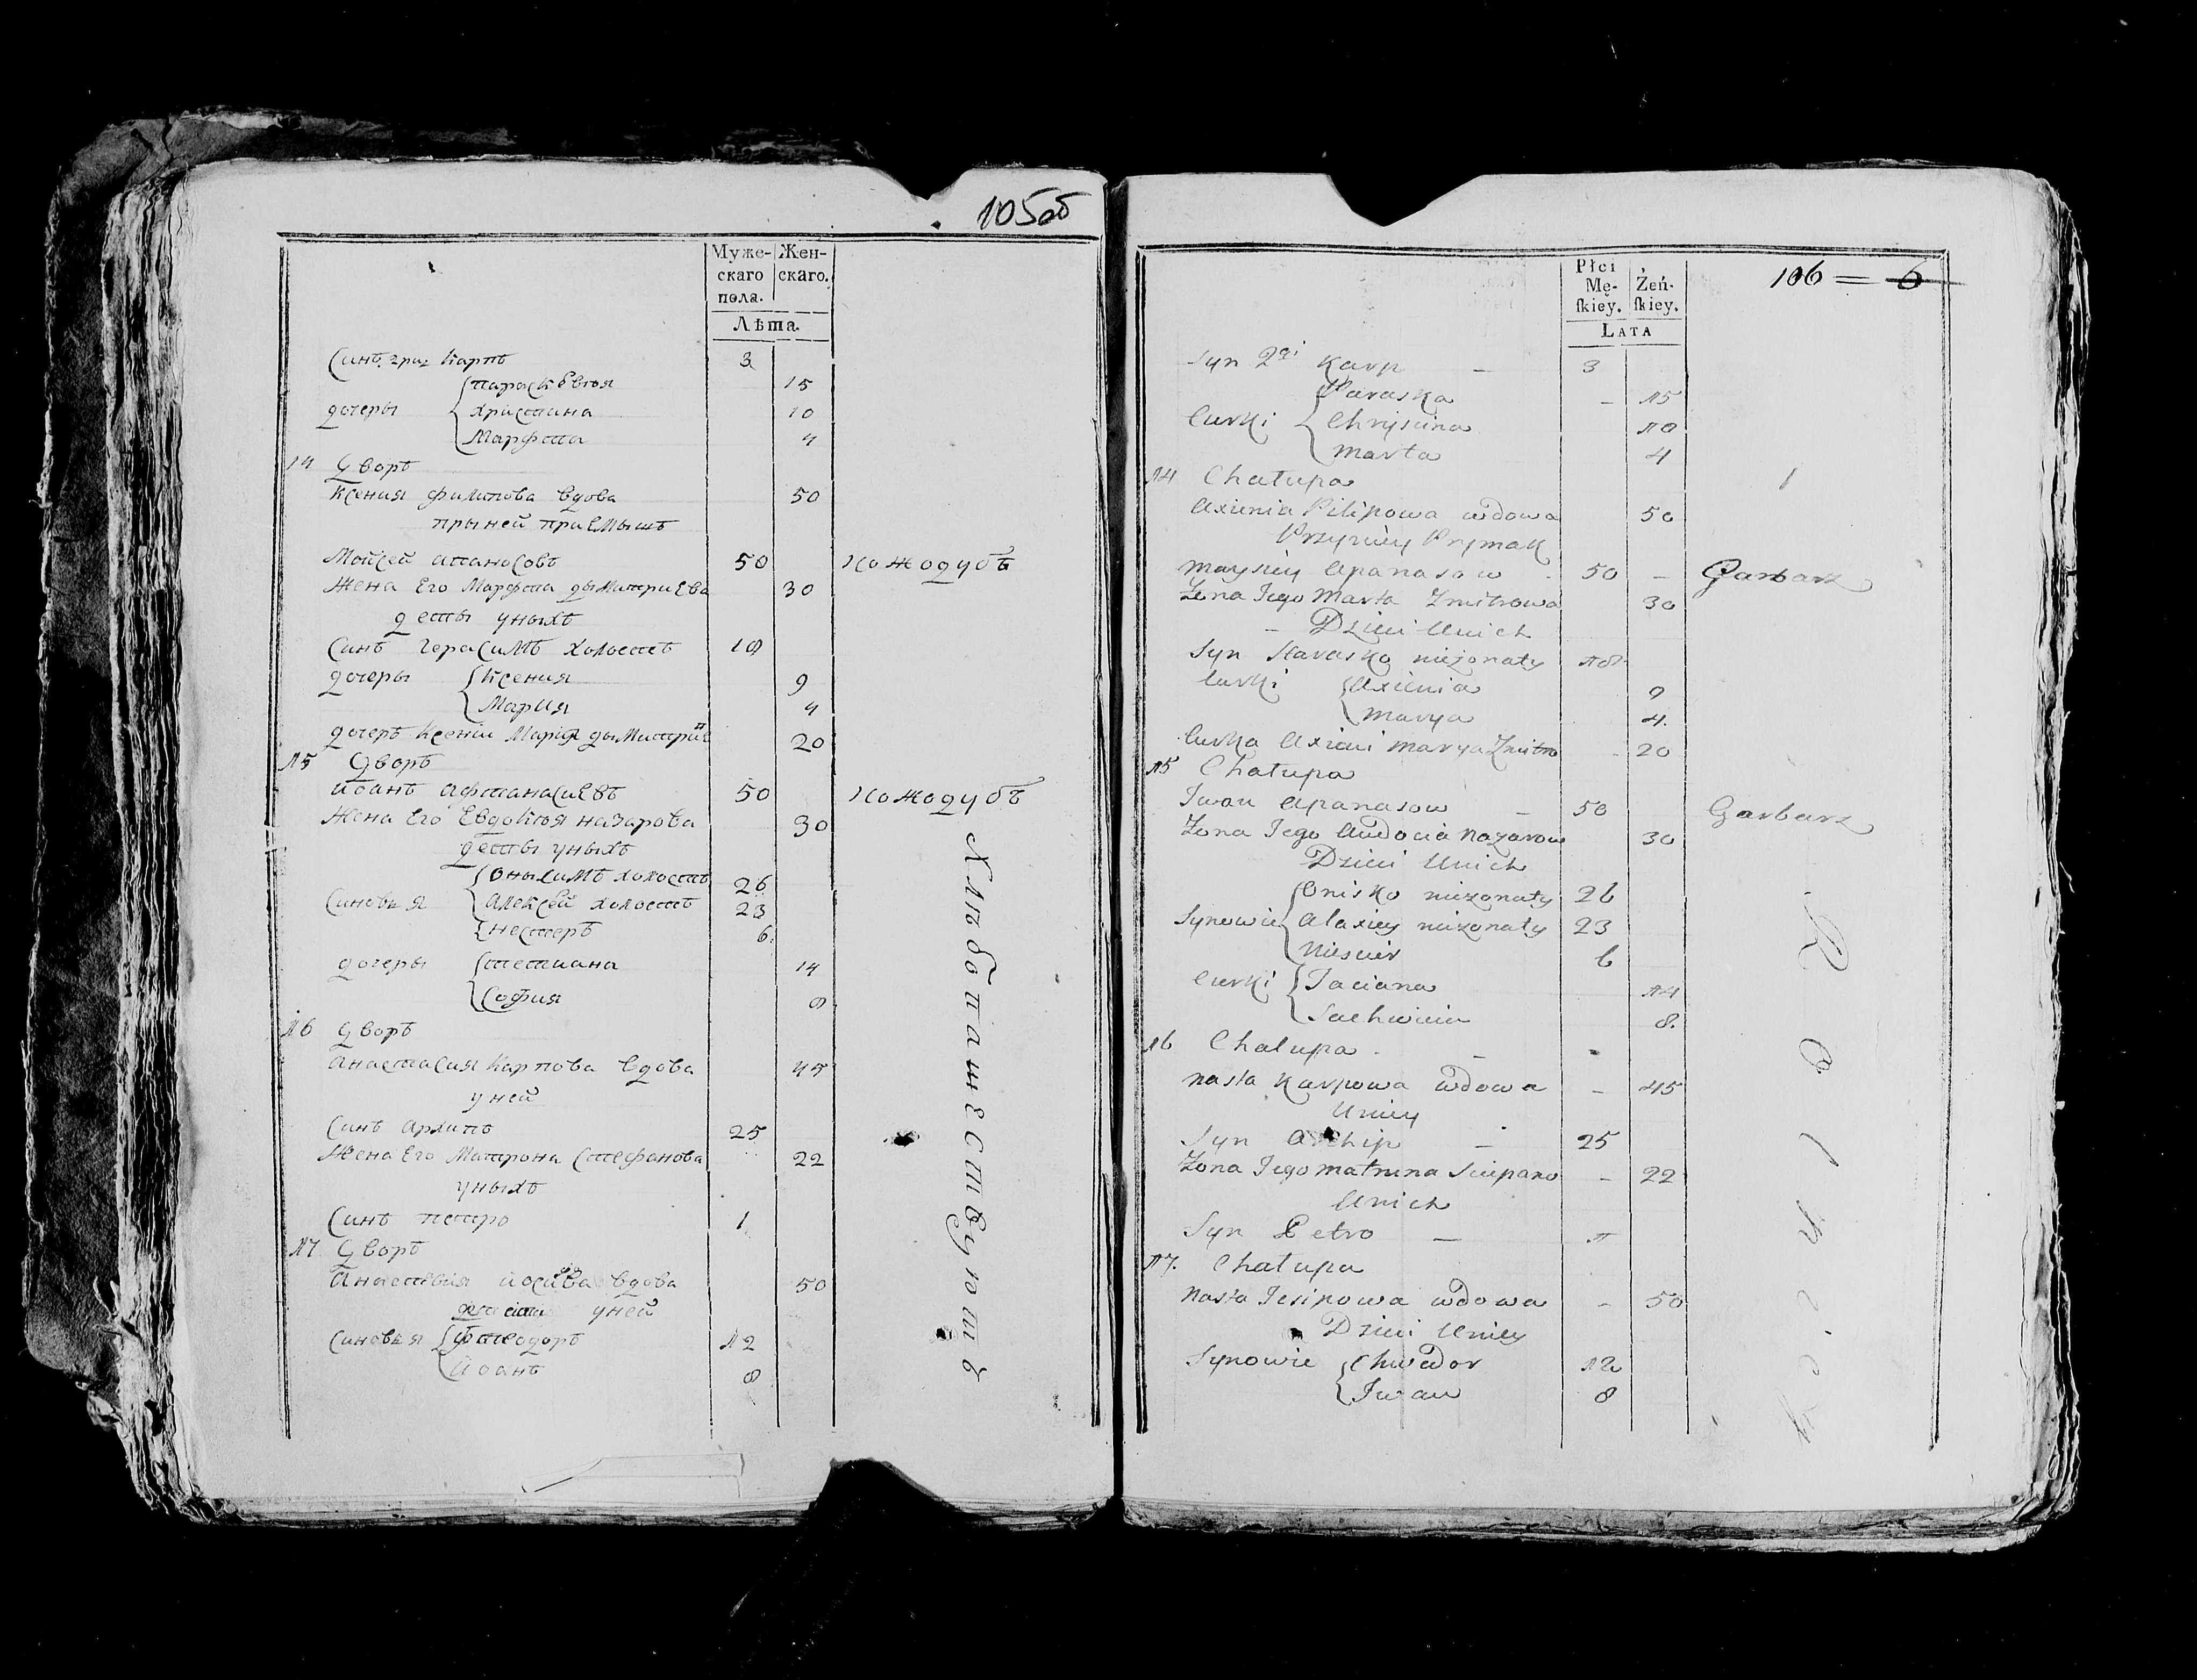 105об
Муже- Жен-
скаго скаго.
пола.
Лѣта.
Синъ 2рӣ Карпъ 3
Параскѣвья 15
дочеры Христина 10
Марфта 4
14 Дворъ
Ксения Филипова вдова 50
прыней приемышъ
Мойсей Апанасовъ 50 Кожодубъ
Жена Его Марфта дыМитриева 30
детты уныхъ
Синъ Герасимъ холостъ 18
дочеры Ксения 9
Мария 4
дочеръ Ксении Мария дыМитри 20
15 Дворъ
Иванъ Афтанасиевъ 50 Кожодубъ
Жена Его Евдокия Назарова 30
детты уныхъ
Онысимъ холостъ 26
Синовья Алексей холостъ 23
Нестеръ 6.
дочеры Тетиана 14
София 8
16 Дворъ
Анастасия Карпова вдова 45
уней
Синъ Архипъ 25
Жена Его Матрона Стефанова 22
уныхъ
Синъ Петро 1
17 Дворъ
Анастасия вдова 50
уней
Синовья Фтеодоръ 12
Иванъ 8
Хлѣбопашествуютъ
106 = 6
Płci Żeń-
Mę- ſkiey.
ſkiey.
LATA
Syn 2gi Karp — 3
Paraska – 15
Curki Chryscina 10
Marta 4
14 Chałupa 1
Axienia Pilipowa wdowa 50
Przyniey Prymak
Maysiey Apanasow 50 – Garbarz
Zona Jego Marta Zmitrowa 30
– Dzieci Unich
Syn Haraska niezonaty 18
Curki Axienia 9
Marya 4.
Curka Axieni Marya Zmitro 20
15 Chałupa
Iwan Apanasow – 50 Garbarz
Zona Jego Audocia Nazarow 30
Dzieci Unich
Onisko niezonaty 26
Synowie Alaxiey niezonaty 23
Niescier 6
Curki Taciana 14
Sachwieia 8.
16 Chałupa
Nasta Karpowa wdowa – 45
Uniey
Syn Archip – 25
Zona Jego Matruna Sciepano – 22
Unich
Syn Petro — 1
17. Chałupa
Nasta Jesipowa wdowa – 50
Dzieci Uniey
Synowie Chwedor 12
Iwan 8
Rolnicy